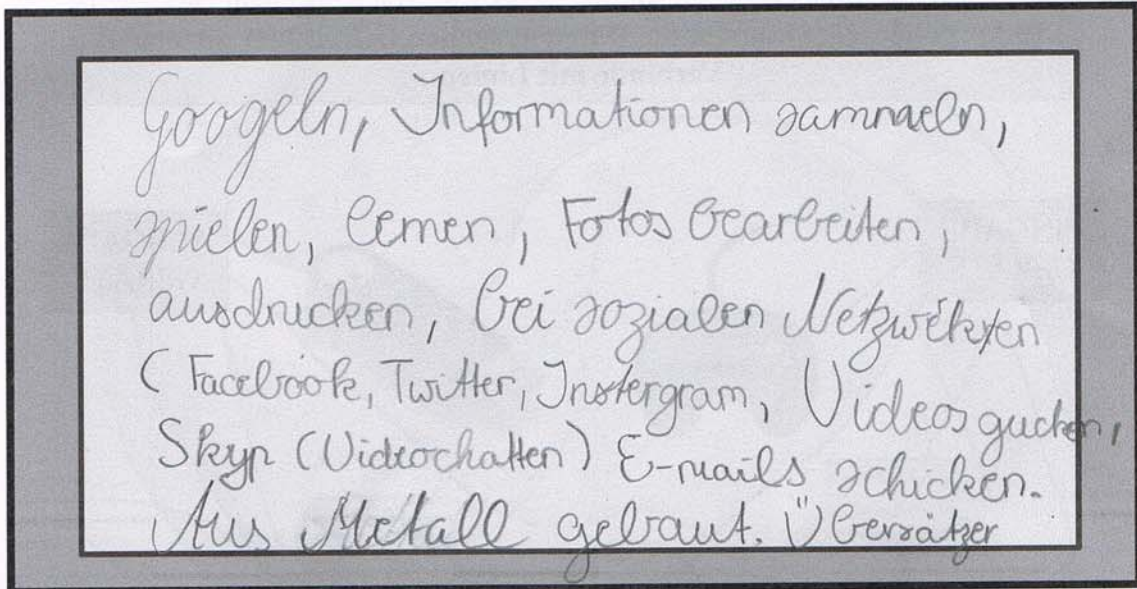 Googeln, Informationen sammeln,
spielen, lernen, Fotos bearbeiten,
ausdrucken, bei sozialen Netzwerken
(Facebook, Twitter, Instergram, Videos gucken,
Skyp (Videochatten) E-mails schicken.
Aus Metall gebaut. Übersätzer